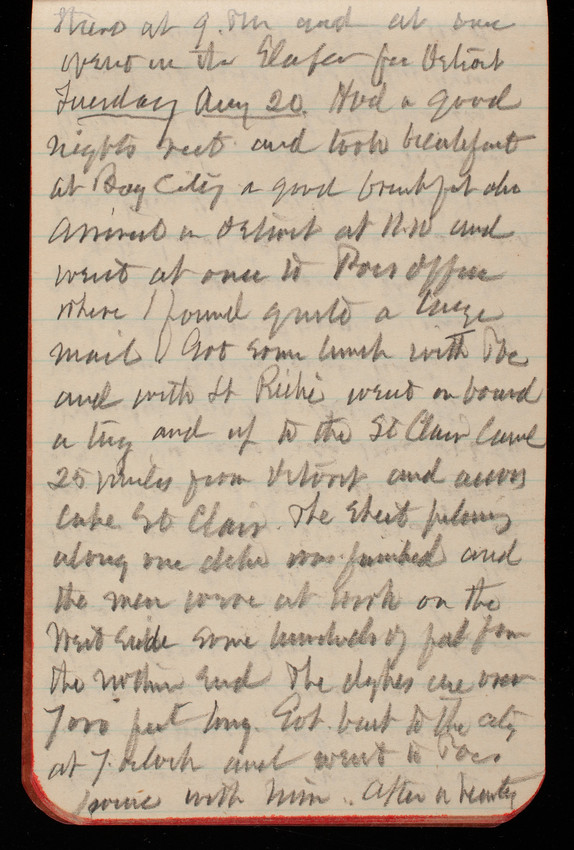 there at 9. PM and at once
went in the Sleeper for Detroit
Tuesday Aug 20. Had a good
nights rest and took breakfast
at Bay City a good breakfast also
Arrived in Detroit at 11.10 and
went at once to Poes office
where I found quite a large
mail. Got some lunch with Poe
and with Lt Riché went on board
a tug and up to the St Clair Canal
25 miles from Detroit and across
Lake St Clair. The Sheet piling
along one dyke was finished and
the men were at work on the
West Side some hundreds of feet from
the northern end The dykes are over
7000 feet long. Got back to the city
at 7. oclock and went to Poes
house with him. After a hearty